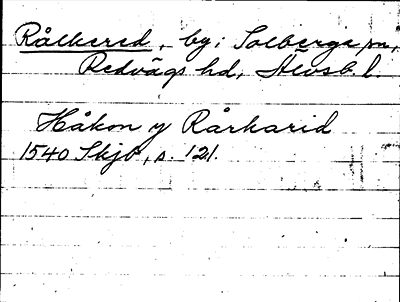 Rålkered, by i Solberga sn,
Redvägs hd, Älvsb. l.
Håkon y Rårkarid
1540 Skjb, s. 121.